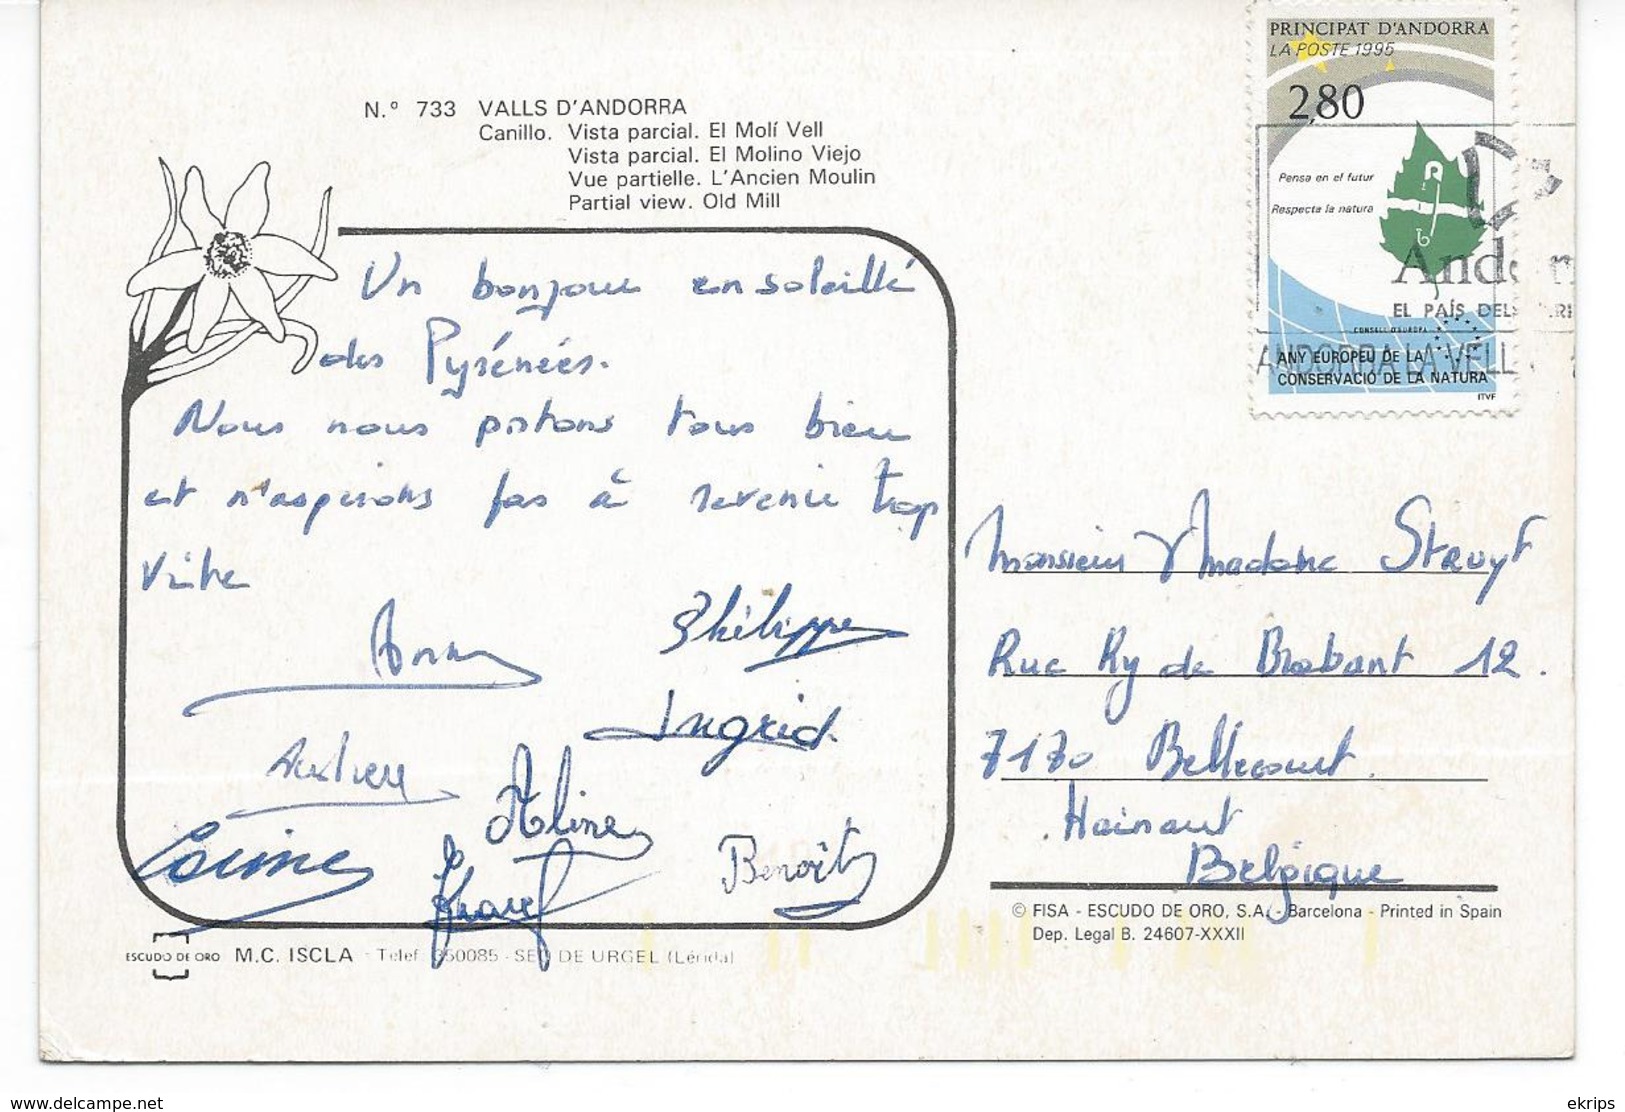 N.º 733 VALLS D'ANDORRA
Canillo. Vista parcial. El Molí Vell
Vista parcial. El Molino Viejo
Vue partielle. L'Ancien Moulin
Partial view. Old Mill
Un bonjour ensoleillé
des Pyrénées.
Nous nous portons tous bien
et n'aspirons pas à revenir trop
vite
Philippe
Ingrid
Aline
Benoît
ESCUDO DE ORO M.C. ISCLA - Telef. 350085 - SEO DE URGEL (Lérida)
PRINCIPAT D'ANDORRA
LA POSTE 1995
2,80
Pensa en el futur
Respecta la natura
EL PAÍS DELS
CONSELL D'EUROPA
ANY EUROPEU DE LA
CONSERVACIÓ DE LA NATURA
ITVF
ANDORRA LA VELL
Monsieur Madame Struyf
Rue Ry de Brabant 12.
7170 Bellecourt.
Hainaut
Belgique
© FISA - ESCUDO DE ORO, S.A. - Barcelona - Printed in Spain
Dep. Legal B. 24607-XXXII
ekrips
delcampe.net